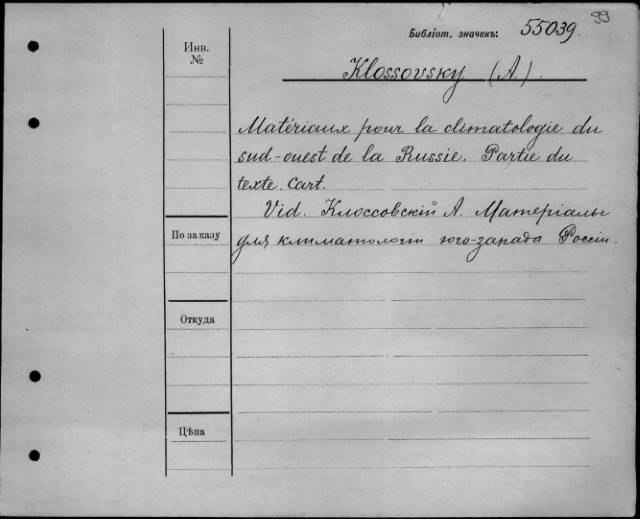 99
Библіот. значекъ: 55039.
Инв.
№
Klossovsky (A.).
Matériaux pour la climatologie du
sud-ouest de la Russie. Partie du
texte. Cart.
Vid. Клоссовскій А. Матеріалы
для климатологіи юго-запада Россіи.
По заказу
Откуда
Цѣна